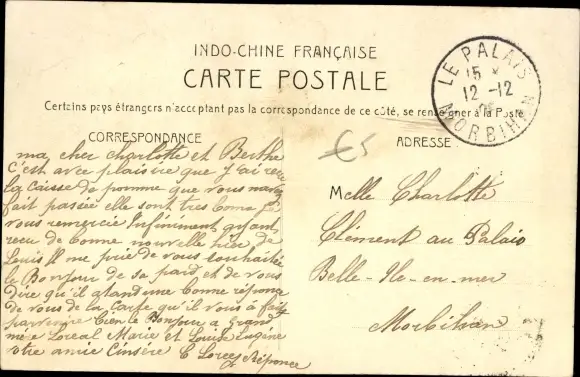 INDO-CHINE FRANÇAISE
CARTE POSTALE
Certains pays étrangers n'acceptant pas la correspondance de ce côté, se renseigner à la Poste
CORRESPONDANCE
ADRESSE
LE PALAIS
15
12-12
MORBIHAN
ma cher Charlotte et Berthe
C'est avec plaisire que J'ai recu
la Caisse de pomme que vous mavez
fait passée elle sont tres bonne Je
vous remercie Infiniment ayant
recu de bonne nouvelle hier de
Louis Il me prie de vous souhaité
le Bonjour de sa pard et de vous
dire qu'il atand une bonne réponse
de vous de la Carte qu'il vous à fait
parvenire bien le Bonjour a Grand
mere Loreal Marie et Louise Eugène
votre amie Cinsère
Réponce
Melle Charlotte
Clément au Palais
Belle-Ile-en-mer
Morbihan